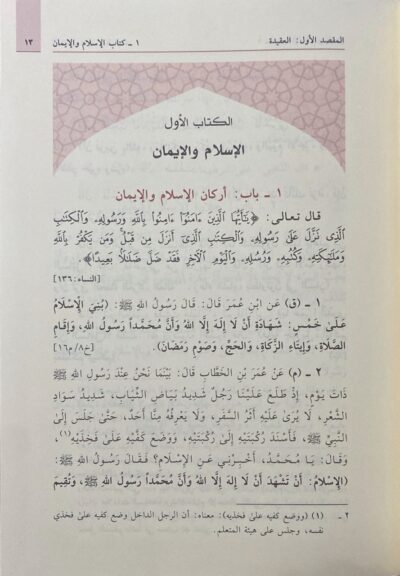 المقصد الأول: العقيدة
١ ـ كتاب الإسلام والإيمان
١٣
الكتاب الأول
الإسلام والإيمان
١ ـ باب: أركان الإسلام والإيمان
قال تعالى: ﴿يَٰٓأَيُّهَا ٱلَّذِينَ ءَامَنُوٓا۟ ءَامِنُوا۟ بِٱللَّهِ وَرَسُولِهِۦ وَٱلْكِتَٰبِ
ٱلَّذِى نَزَّلَ عَلَىٰ رَسُولِهِۦ وَٱلْكِتَٰبِ ٱلَّذِىٓ أَنزَلَ مِن قَبْلُ وَمَن يَكْفُرْ بِٱللَّهِ
وَمَلَٰٓئِكَتِهِۦ وَكُتُبِهِۦ وَرُسُلِهِۦ وَٱلْيَوْمِ ٱلْءَاخِرِ فَقَدْ ضَلَّ ضَلَٰلًۢا بَعِيدًا﴾.
[النساء:١٣٦]
١ ـ (ق) عَنِ ابْنِ عُمَرَ قَالَ: قَالَ رَسُولُ اللهِ ﷺ: (بُنِيَ الإِسْلَامُ
عَلَىٰ خَمْسٍ: شَهَادَةِ أَنْ لَا إِلَٰهَ إِلَّا اللهُ وَأَنَّ مُحَمَّداً رَسُولُ اللهِ، وَإِقَامِ
الصَّلَاةِ، وَإِيتَاءِ الزَّكَاةِ، وَالحَجِّ، وَصَوْمِ رَمَضَانَ).
[خ٨/ م١٦]
٢ ـ (م) عَنْ عُمَرَ بْنِ الْخَطَّابِ قَالَ: بَيْنَمَا نَحْنُ عِنْدَ رَسُولِ اللهِ ﷺ
ذَاتَ يَوْمٍ، إِذْ طَلَعَ عَلَيْنَا رَجُلٌ شَدِيدُ بَيَاضِ الثِّيَابِ، شَدِيدُ سَوَادِ
الشَّعْرِ، لَا يُرَىٰ عَلَيْهِ أَثَرُ السَّفَرِ، وَلَا يَعْرِفُهُ مِنَّا أَحَدٌ، حَتَّىٰ جَلَسَ إِلَىٰ
النَّبِيِّ ﷺ، فَأَسْنَدَ رُكْبَتَيْهِ إِلَىٰ رُكْبَتَيْهِ، وَوَضَعَ كَفَّيْهِ عَلَىٰ فَخِذَيْهِ(١)،
وَقَالَ: يَا مُحَمَّدُ، أَخْبِرْنِي عَنِ الإِسْلَامِ؟ فَقَالَ رَسُولُ اللهِ ﷺ:
(الإِسْلَامُ: أَنْ تَشْهَدَ أَنْ لَا إِلَٰهَ إِلَّا اللهُ وَأَنَّ مُحَمَّداً رَسُولُ اللهِ ﷺ، وَتُقِيمَ
٢ ـ (١) (ووضع كفيه علىٰ فخذيه): معناه: أن الرجل الداخل وضع كفيه علىٰ فخذي
نفسه، وجلس علىٰ هيئة المتعلم.